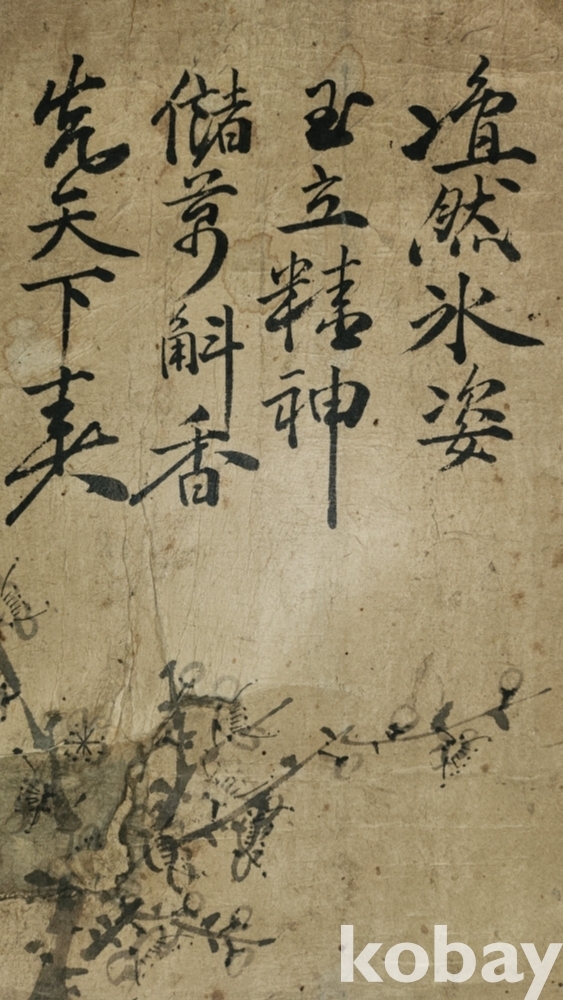 然氷姿
玉立精神
儲萬斛香
先天下春
kobay